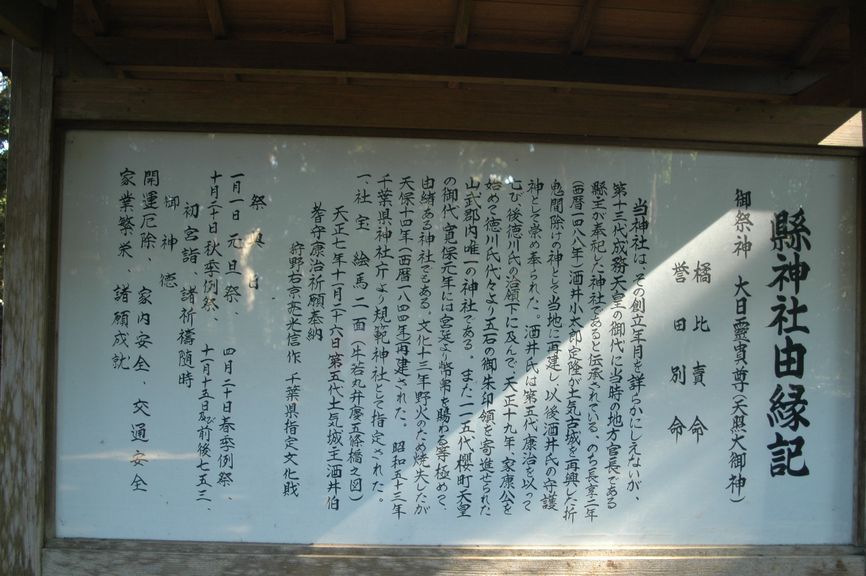 縣神社由縁記
御祭神 大日靈貴尊(天照大御神)
橘比賣命
誉田別命
当神社は、その創立年月を詳らかにしえないが、
第十三代成務天皇の御代に当時の地方官長である
縣主が奉祀した神社であると伝承されている。のち長享二年
(西暦一四八八年)酒井小太郎定隆が土気古城を再興した折
鬼間除けの神として当地に再建し以後酒井氏の守護
神として崇め奉られた。酒井氏は第五代康治を以って
亡び後徳川氏の治領下に及んで、天正十九年、家康公を
始めて徳川氏代々より五石の御朱印領を寄進せられた
山武郡内唯一の神社である。また一一五代櫻町天皇
の御代、寛保元年には宮廷より幣帛を賜わる等極めて、
由緒ある神社でもある。文化十三年野火のため焼失したが
天保十四年(西暦一八四四年)再建された。昭和五十三年
千葉県神社庁より規範神社として指定された。
一、社宝 絵馬二面(牛若丸弁慶五條橋之図)
天正七年十一月二十六日第五代土気城主酒井伯
耆守康治祈願奉納
狩野右京亮光信作 千葉県指定文化財
祭典日
一月一日元旦祭、 四月二十日春季例祭、
十月二十日秋季例祭、 十一月十五日及び前後七五三、
初宮詣、諸祈禱随時
御神徳
開運厄除、家内安全、交通安全
家業繁栄、諸願成就